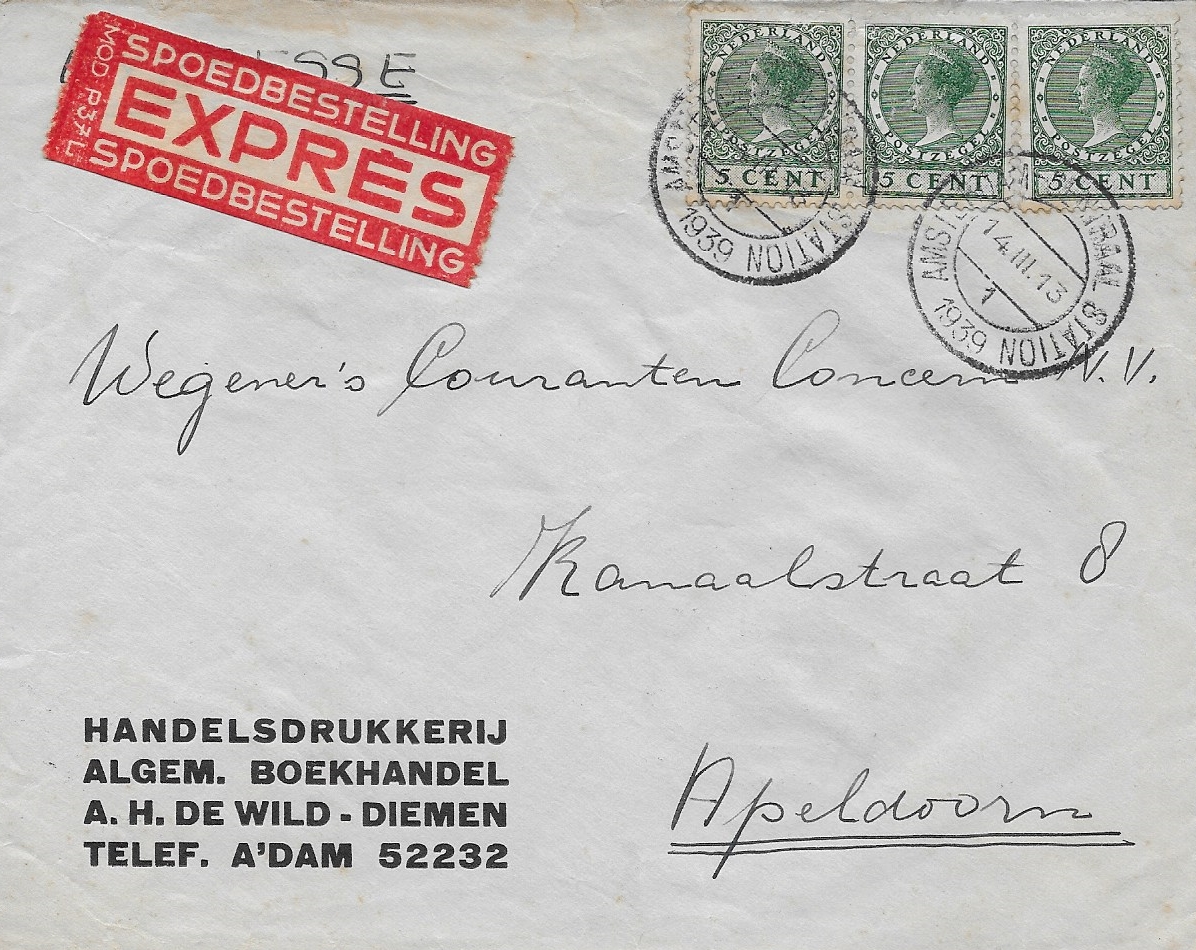 SPOEDBESTELLING
EXPRÈS
SPOEDBESTELLING
MOD P.37 L
NEDERLAND
POSTZEGEL
5 CENT
NEDERLAND
POSTZEGEL
5 CENT
NEDERLAND
POSTZEGEL
5 CENT
STATION
1939
14.III.13
1
STATION
1939
Wegener's Couranten Concern N.V.
Kanaalstraat 8
Apeldoorn
HANDELSDRUKKERIJ
ALGEM. BOEKHANDEL
A. H. DE WILD - DIEMEN
TELEF. A'DAM 52232